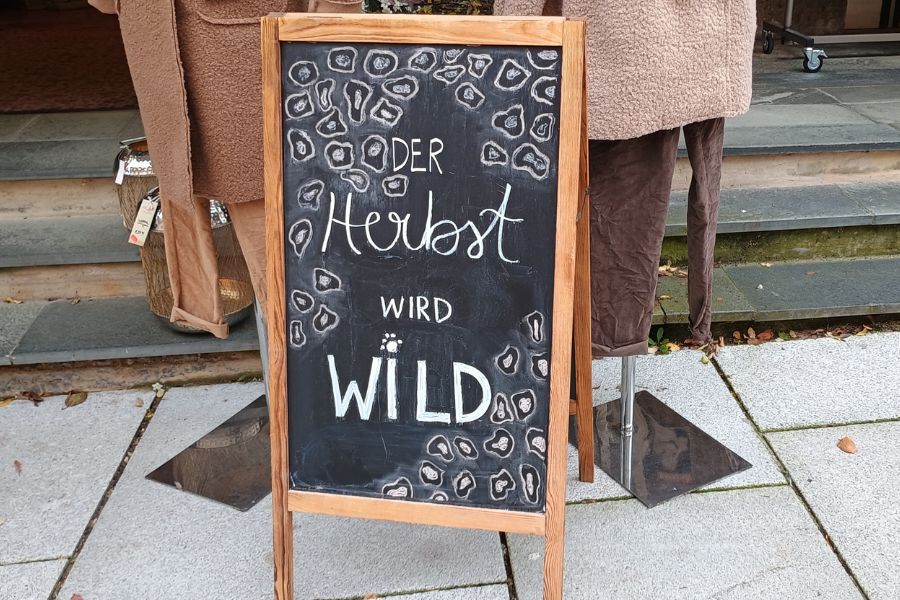 DER
Herbst
WIRD
WILD